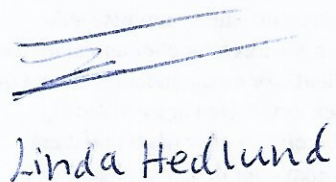 Linda Hedlund